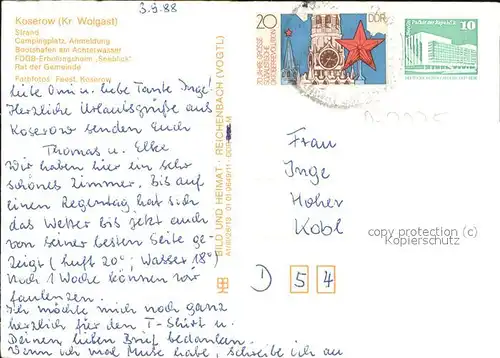 3.9.88
Koserow (Kr Wolgast)
Strand
Campingplatz, Anmeldung
Bootshafen am Achterwasser
FDGB-Erholungsheim „Seeblick"
Rat der Gemeinde
Farbfotos: Feest, Koserow
Liebe Omi u. liebe Tante Inge!
Herzliche Urlaubsgrüße aus
Koserow senden Euch
Thomas u. Elke
Wir haben hier ein sehr
schönes Zimmer. Bis auf
einen Regentag hat sich
das Wetter bis jetzt auch
von seiner besten Seite ge-
zeigt (Luft 20°; Wasser 18°)
Noch 1 Woche können wir
faulenzen.
Ich möchte mich noch ganz
herzlich für den T-Shirt u.
Deinen lieben Brief bedanken.
Wenn ich mal Muse habe, schreibe ich an
BILD UND HEIMAT · REICHENBACH (VOGTL)
20
DDR
70. JAHRE GROSSE
SOZIALISTISCHE
OKTOBERREVOLUTION
10
Frau
Inge
Hoher
Kobl
1) 54
copyright
Kuenstlerservice